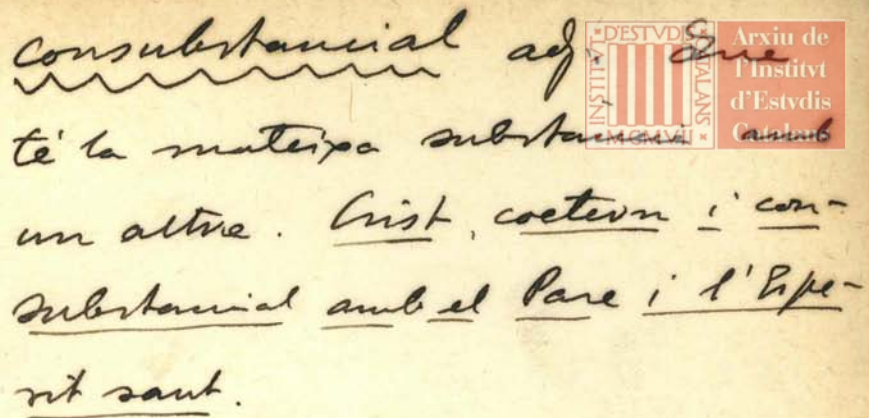 consubstancial adj. Que
té la mateixa substància amb
un altre. Crist, coetern i con-
substancial amb el Pare i l'Espe-
rit sant.
INSTITVT D'ESTVDIS CATALANS
MCMVII
Arxiu de
l'Institvt
d'Estvdis
Catalans